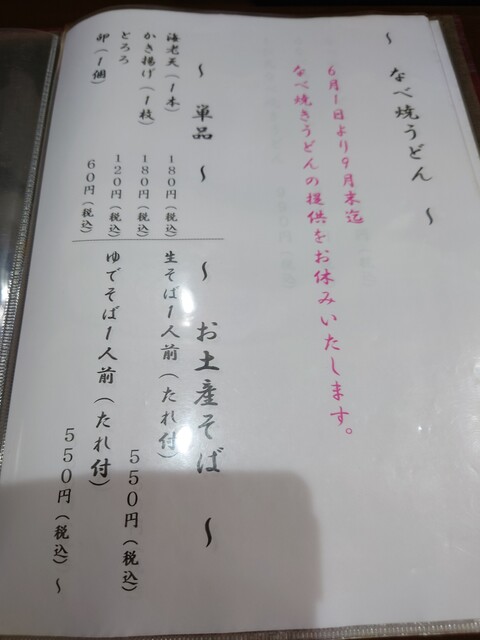 ～ なべ焼うどん ～
6月1日より9月末迄
なべ焼きうどんの提供をお休みいたします。
～ 単品 ～
海老天(1本) 180円(税込)
かき揚げ(1枚) 180円(税込)
とろろ 120円(税込)
卵(1個) 60円(税込)
～ お土産そば ～
生そば1人前(たれ付)
550円(税込)
ゆでそば1人前(たれ付)
550円(税込)～